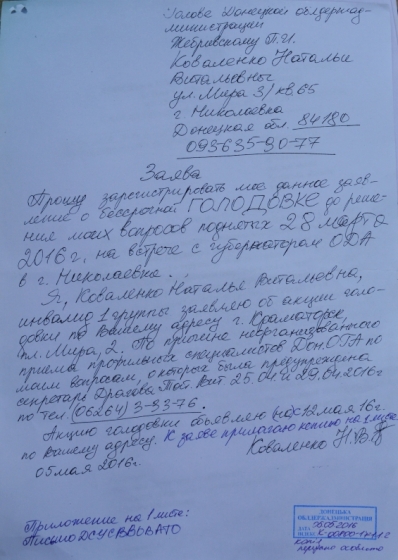 Голове Донецкой облдержад-
министрации
Жебривскому П.И.
Коваленко Натальи
Витальевны
ул. Мира 3/кв.65
г. Николаевка
Донецкая обл. 84180
093-635-90-77
Заява
Прошу зарегистрировать мое данное заяв-
ление о бессрочной ГОЛОДОВКЕ до реше-
ния моих вопросов поднятых 28 марта
2016г, на встрече с губернатором ОДА
в г. Николаевка.
Я, Коваленко Наталья Витальевна,
инвалид 1 группы заявляю об акции голо-
довки по Вашему адресу г. Краматорск,
пл. Мира, 2. По причине неорганизованного
приема профильных специалистов Дон.ОГА по
моим вопросам, о которых была предупреждена
секретарь 25.04 и 29.04 2016г
по тел. (06264) 3-33-76.
Акцию голодовки объявляю 12 мая 16г.
по Вашему адресу. К заяве прилагаю копию на 1 листе.
Коваленко Н.В.
05 мая 2016г.
Приложение на 1 листе:
Письмо
ДОНЕЦЬКА
ОБЛДЕРЖАДМІНІСТРАЦІЯ
ДАТА 05.05.2016
особисто